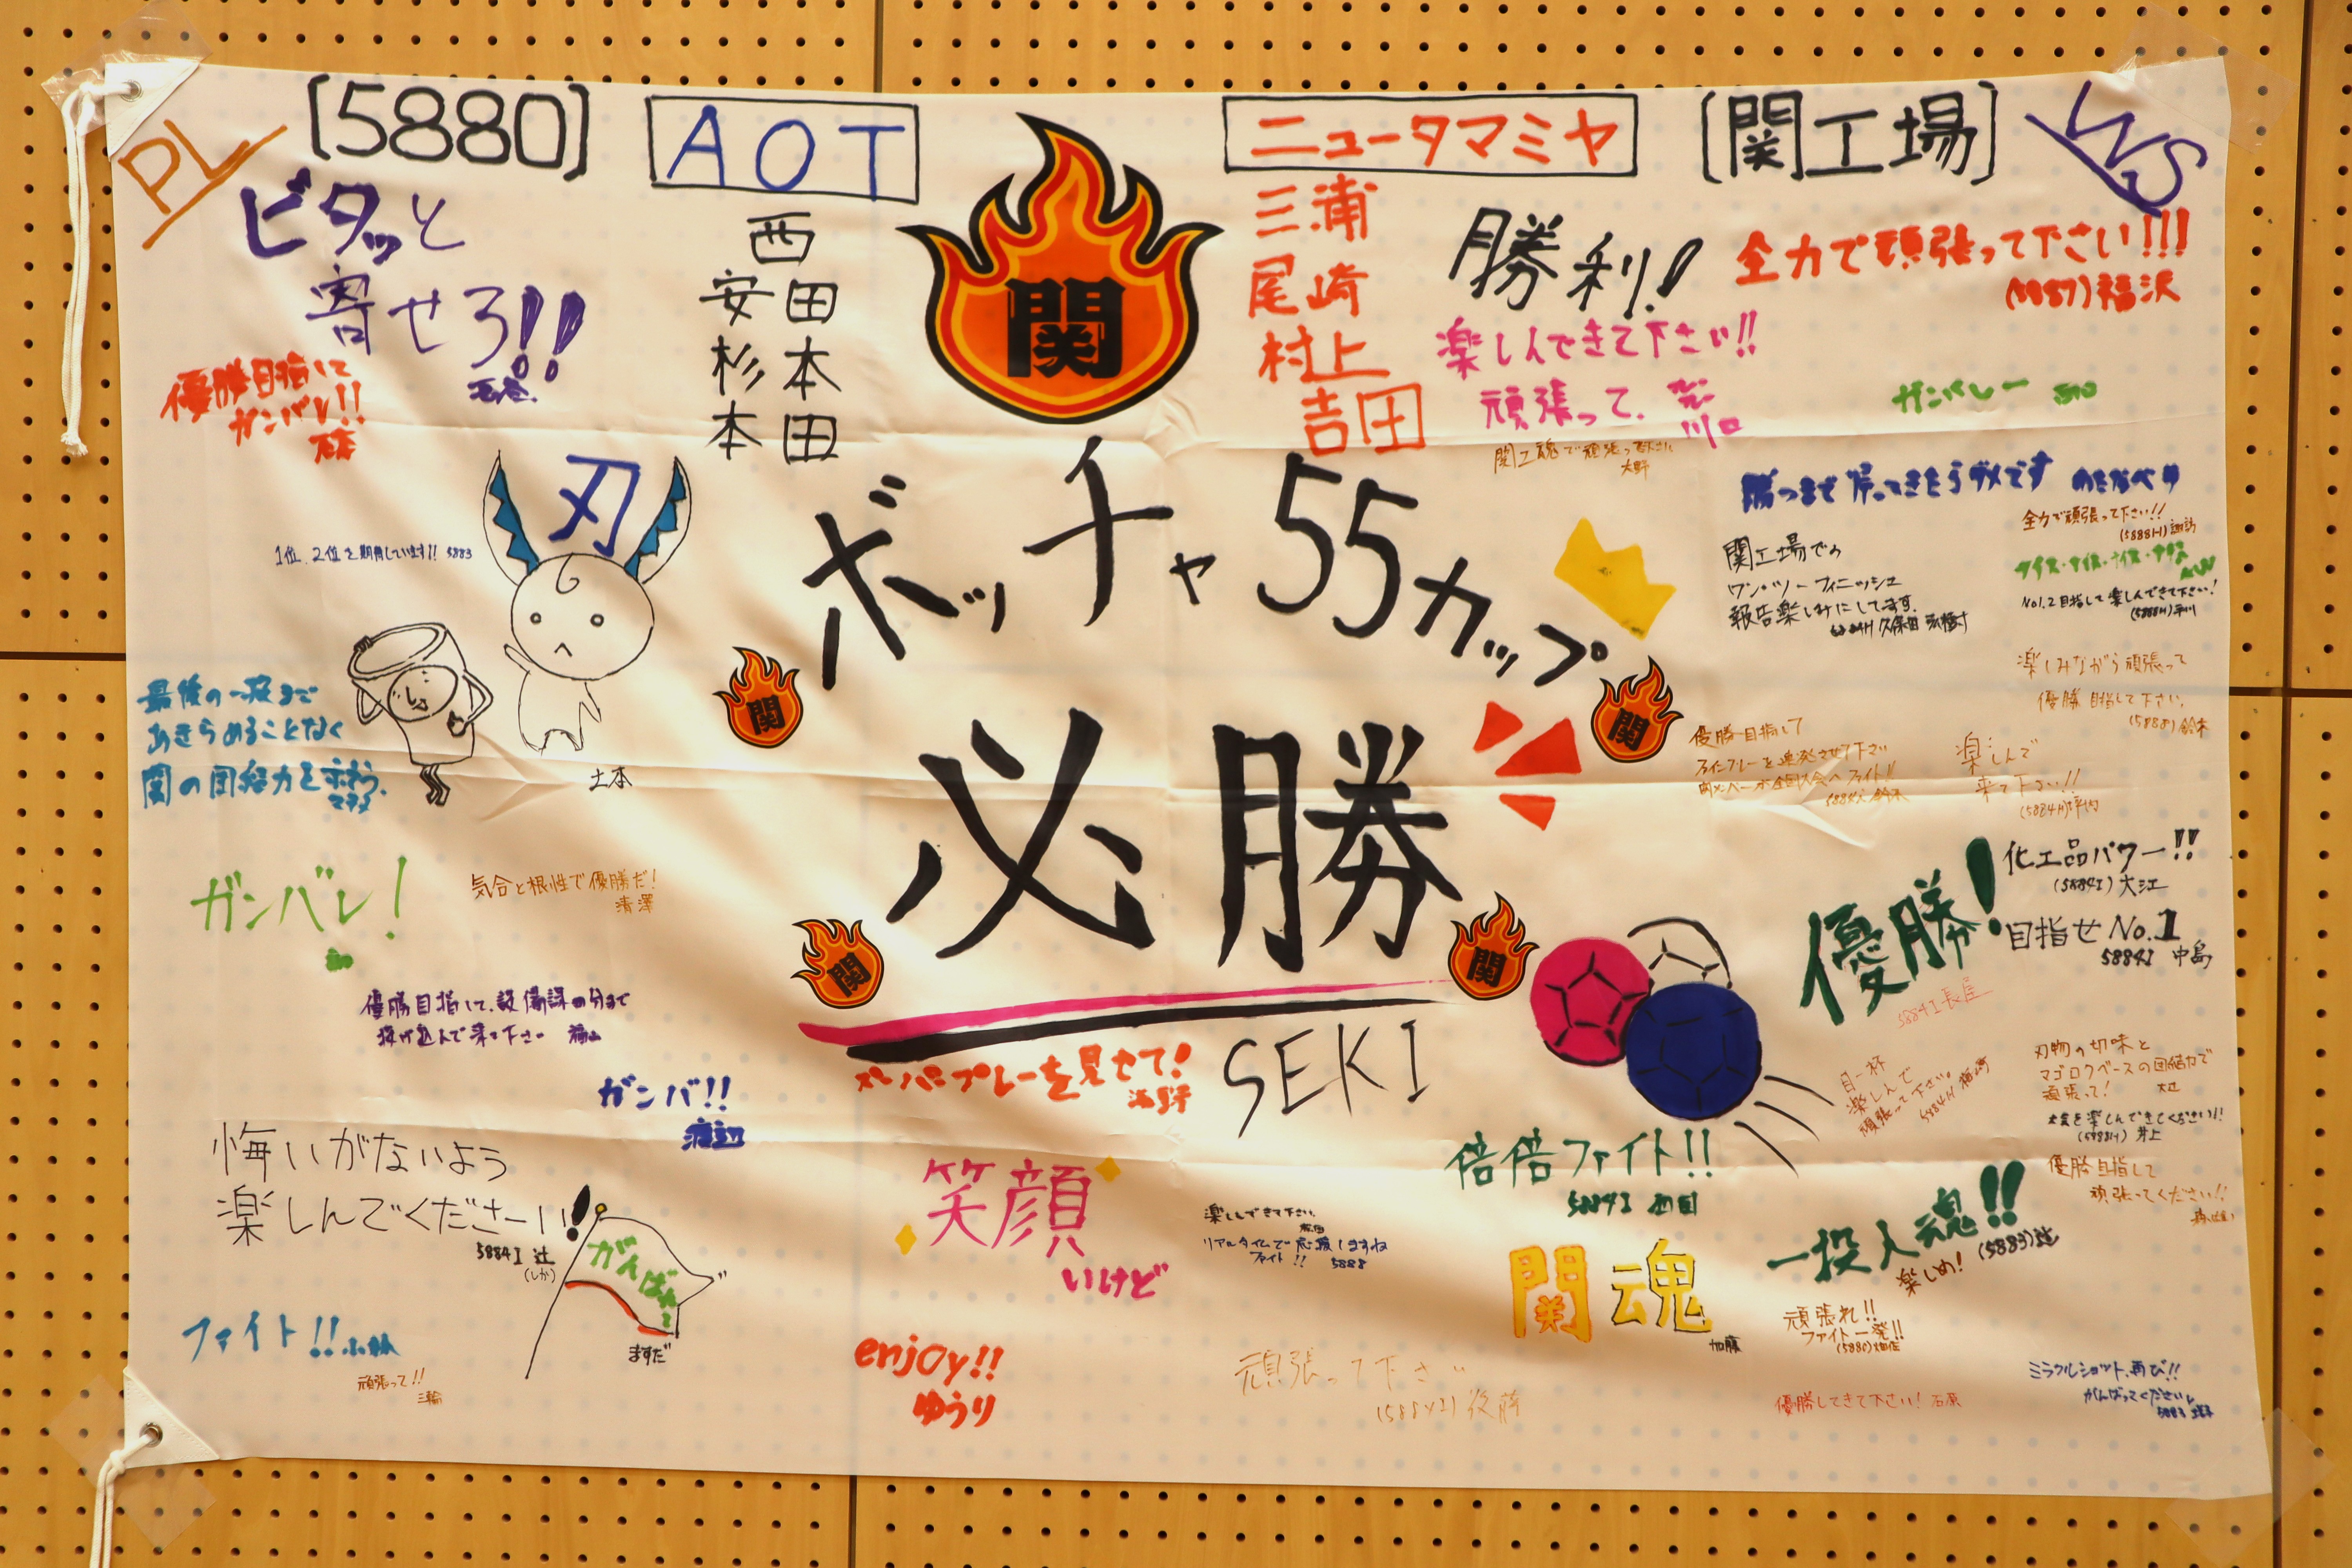 PL
[5880]
AOT
ニュータマミヤ
[関工場]
WS
ビタッと
寄せろ!!
優勝目指して
ガンバレ!!
西
安田
杉本
本田
関
三浦
尾崎
村上
吉田
勝利!
楽しんできて下さい!!
頑張って。
川口
全力で頑張って下さい!!!
(5887)福沢
ガンバレー
関工魂で頑張って下さい
大野
刃
1位、2位を期待しています!! 5883
土本
最後の一投まで
あきらめることなく
関の団結力を
ボッチャ55カップ
必勝
関
関
関
関
SEKI
勝つまで帰ってきたらダメです わたなべ
全力で頑張って下さい!!
(5888H)諏訪
関工場での
ワン・ツーフィニッシュ
報告楽しみにしてます。
久保田
ナイス・ナイス・ナイス・ナイス
No1.2目指して楽しんできて下さい!
(5888H)平川
楽しみながら頑張って
優勝目指して下さい。
(5888)鈴木
優勝目指して
ファインプレーを連発させて下さい
楽しんで
来て下さい!!
ガンバレ!
気合と根性で優勝だ!
清澤
優勝目指して、設備課の分まで
投げ込んで来て下さい 福山
ガンバ!!
渡辺
スーパープレーを見せて!
化工品パワー!!
(5884I)大江
優勝!
目指せNo.1
5884I 中島
5884I 長屋
目一杯
楽しんで
頑張って下さい。
刃物の切味と
マゴロクベースの団結力で
頑張って!
大会を楽しんできてください!!
(5888H) 井上
優勝目指して
頑張ってください!!
悔いがないよう
楽しんでくださーい!
5884I 辻
がんばれ!
ますだ
笑顔
いけど
楽しんできて下さい。
リアルタイムで応援しますね
ファイト!! 5888
倍倍ファイト!!
5884I 西田
一投入魂!!
楽しめ!
(5883)辻
闘魂
加藤
頑張れ!!
ファイト一発!!
ファイト!!小林
頑張って!!
三輪
enjoy!!
ゆうり
頑張って下さい
(5884I)後藤
優勝してきて下さい! 石原
ミラクルショット、再び!!
がんばってください